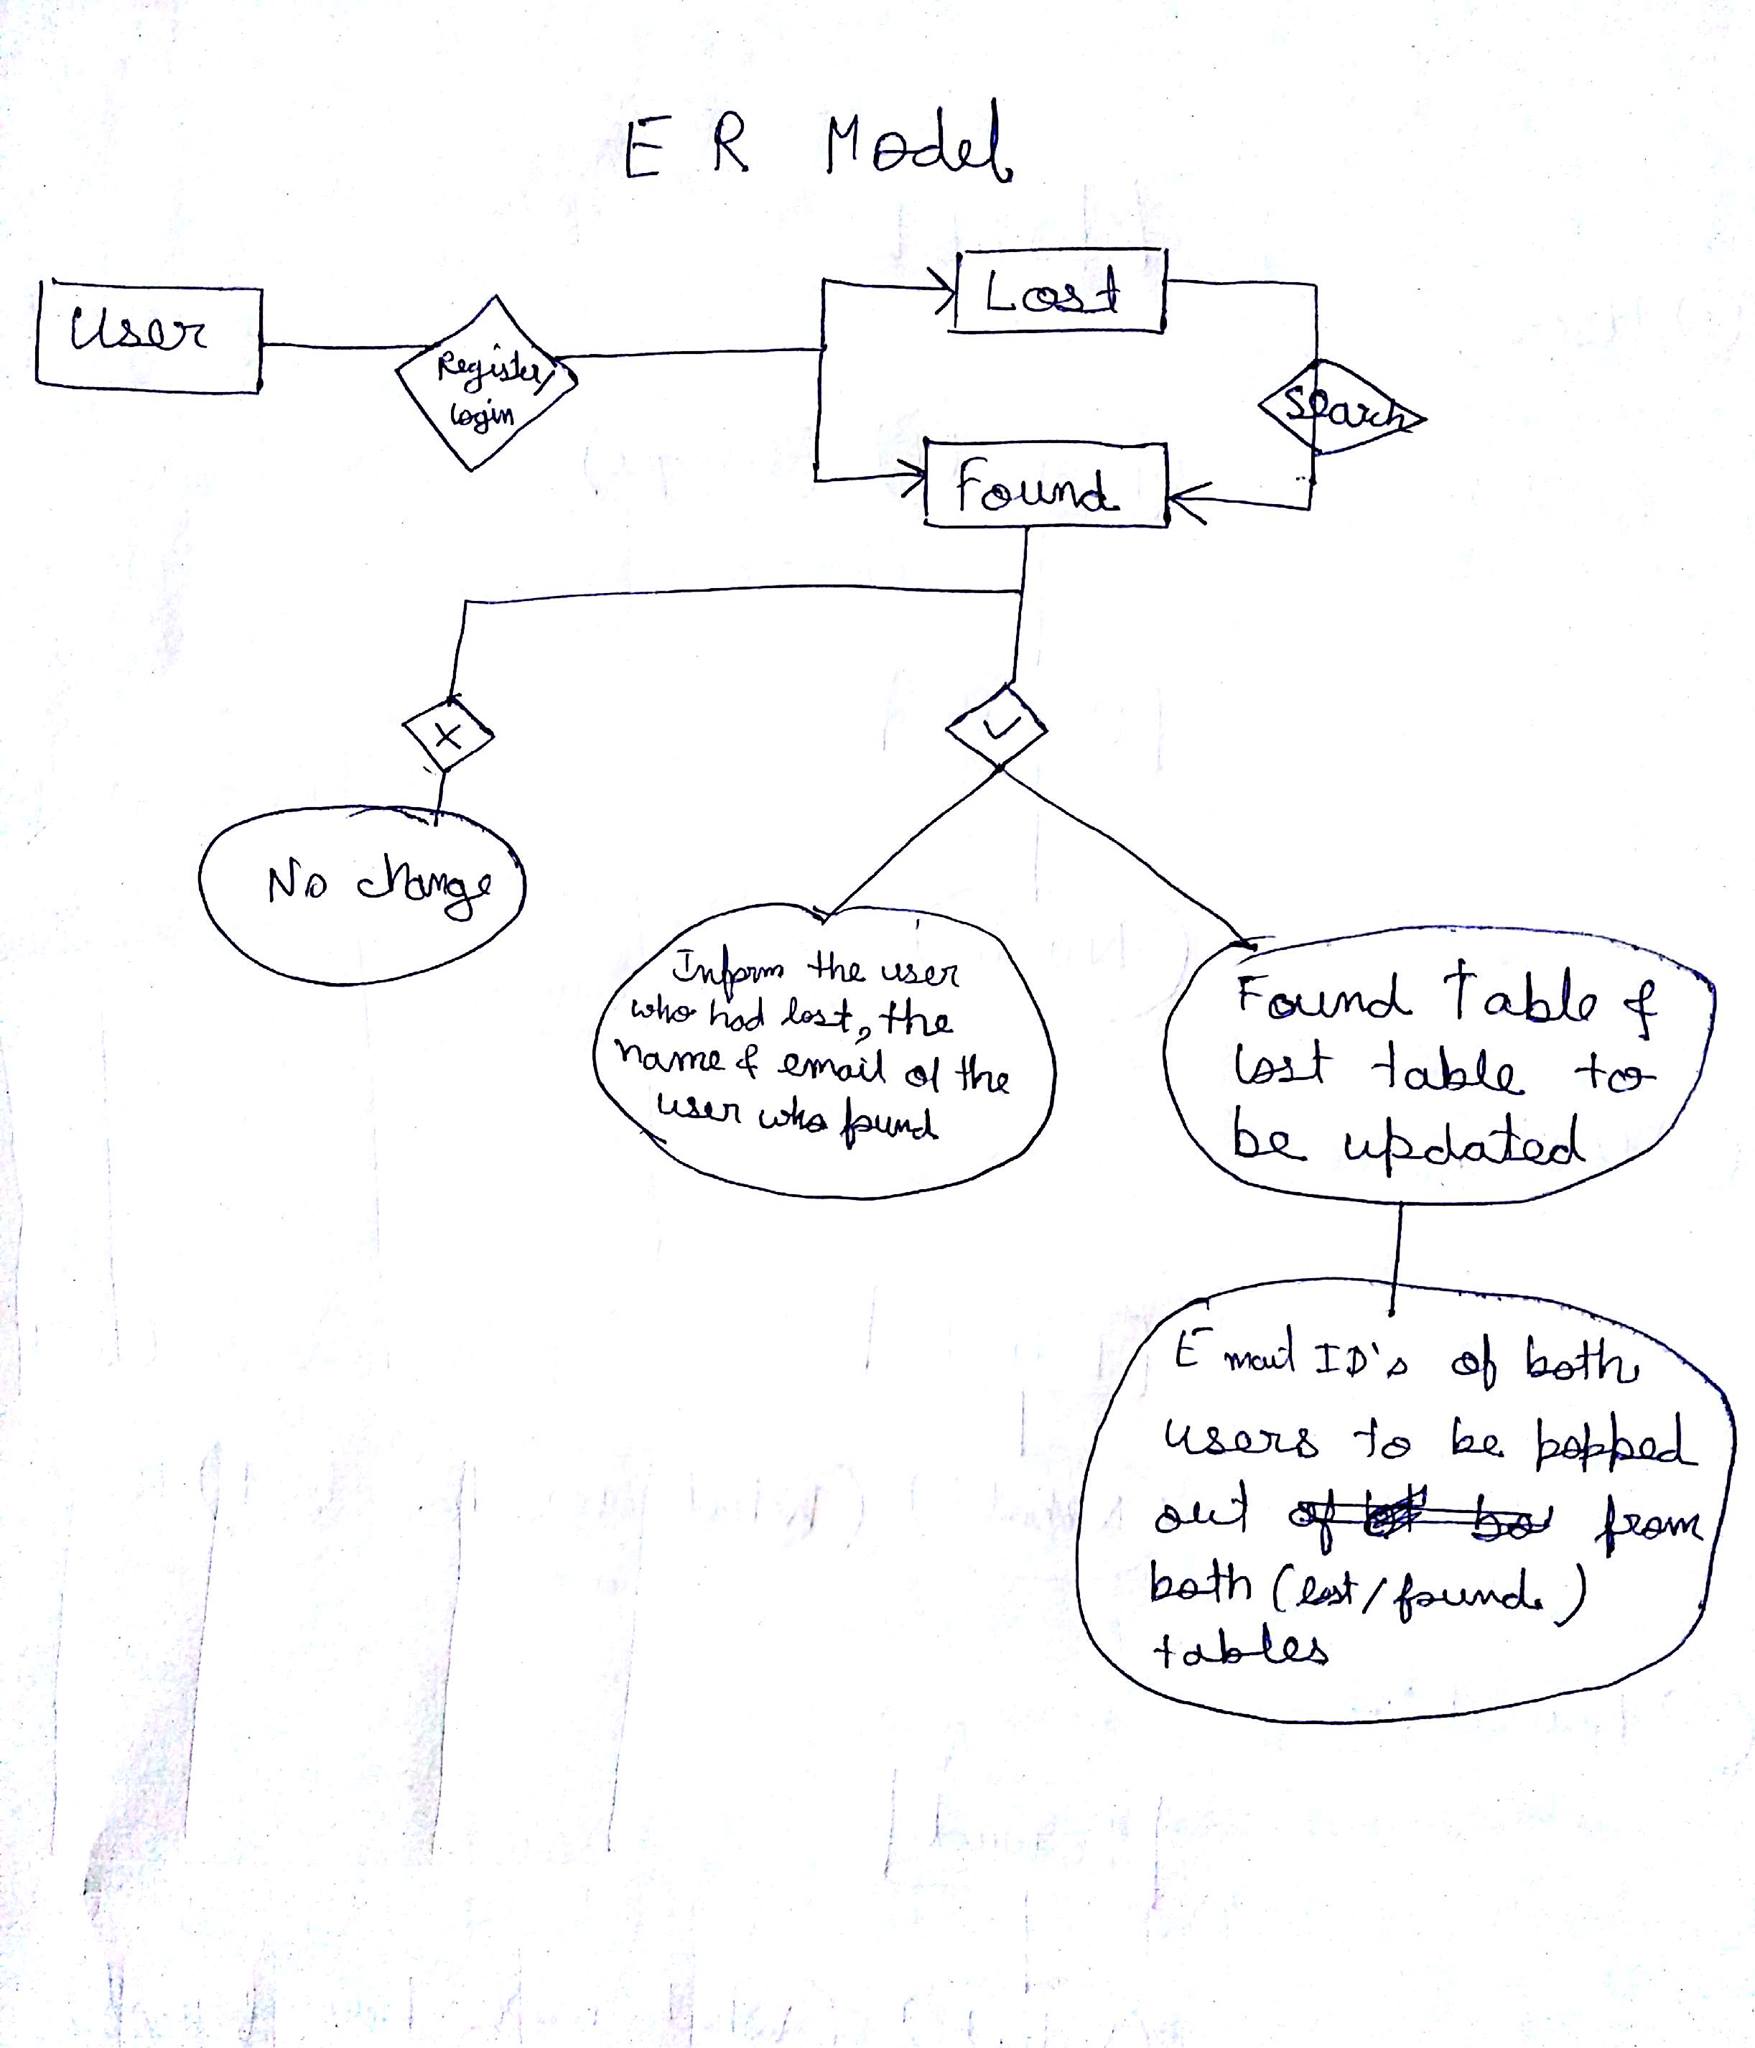 E R Model
User
Register/
login
Lost
Search
Found
X
✓
No change
Inform the user
who had lost, the
name & email of the
user who found
Found Table &
lost table to
be updated
Email ID's of both
users to be popped
out from
both (lost/found)
tables